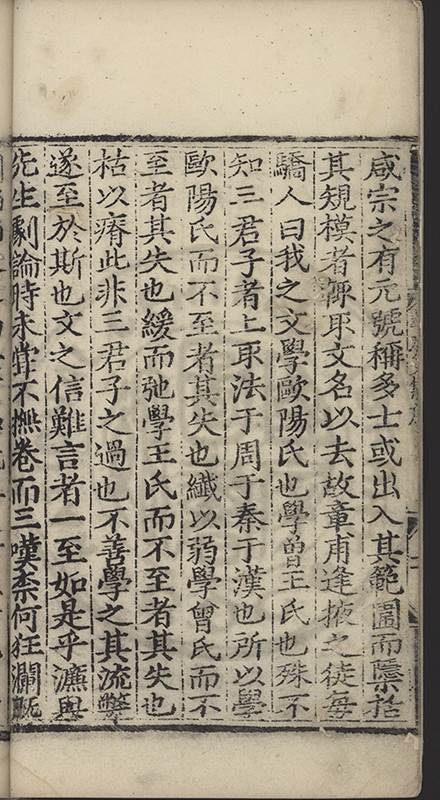 咸宗之有元號稱多士或出入其範圍而隱括
其規模者輒取文名以去故章甫逢掖之徒每
驕人曰我之文學歐陽氏也學曾王氏也殊不
知三君子者上取法于周于秦于漢也所以學
歐陽氏而不至者其失也纖以弱學曾氏而不
至者其失也緩而弛學王氏而不至者其失也
枯以瘠此非三君子之過也不善學之其流弊
遂至於斯也文之信難言者一至如是乎濂與
先生劇論時未嘗不撫卷而三嘆柰何狂瀾既